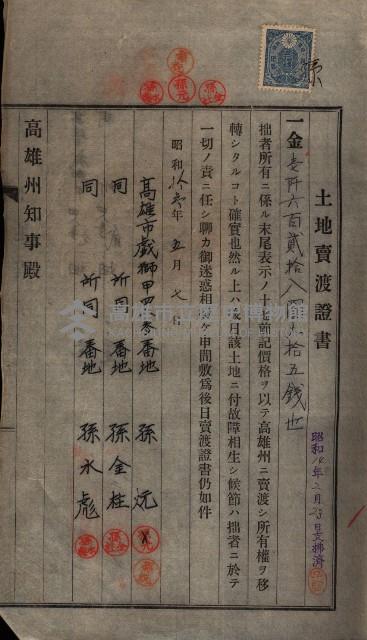 土地賣渡證書
一金壹阡六百貳拾八圓拾五錢也
拙者所有ニ係ル末尾表示ノ土地前記價格ヲ以テ高雄州ニ賣渡シ所有權ヲ移
轉シタルコト確實也然ル上ハ後日該土地ニ付故障相生シ候節ハ拙者ニ於テ
一切ノ責ニ任シ聊カ御迷惑相掛ケ申間敷爲後日賣渡證書仍如件
昭和 年五月七日
高雄市戲獅甲四參番地 孫 
同 所同番地 孫金柱
同 所同番地 孫水彪
高雄州知事殿
昭和 年 月 日支拂済
高雄市立歷史博物館